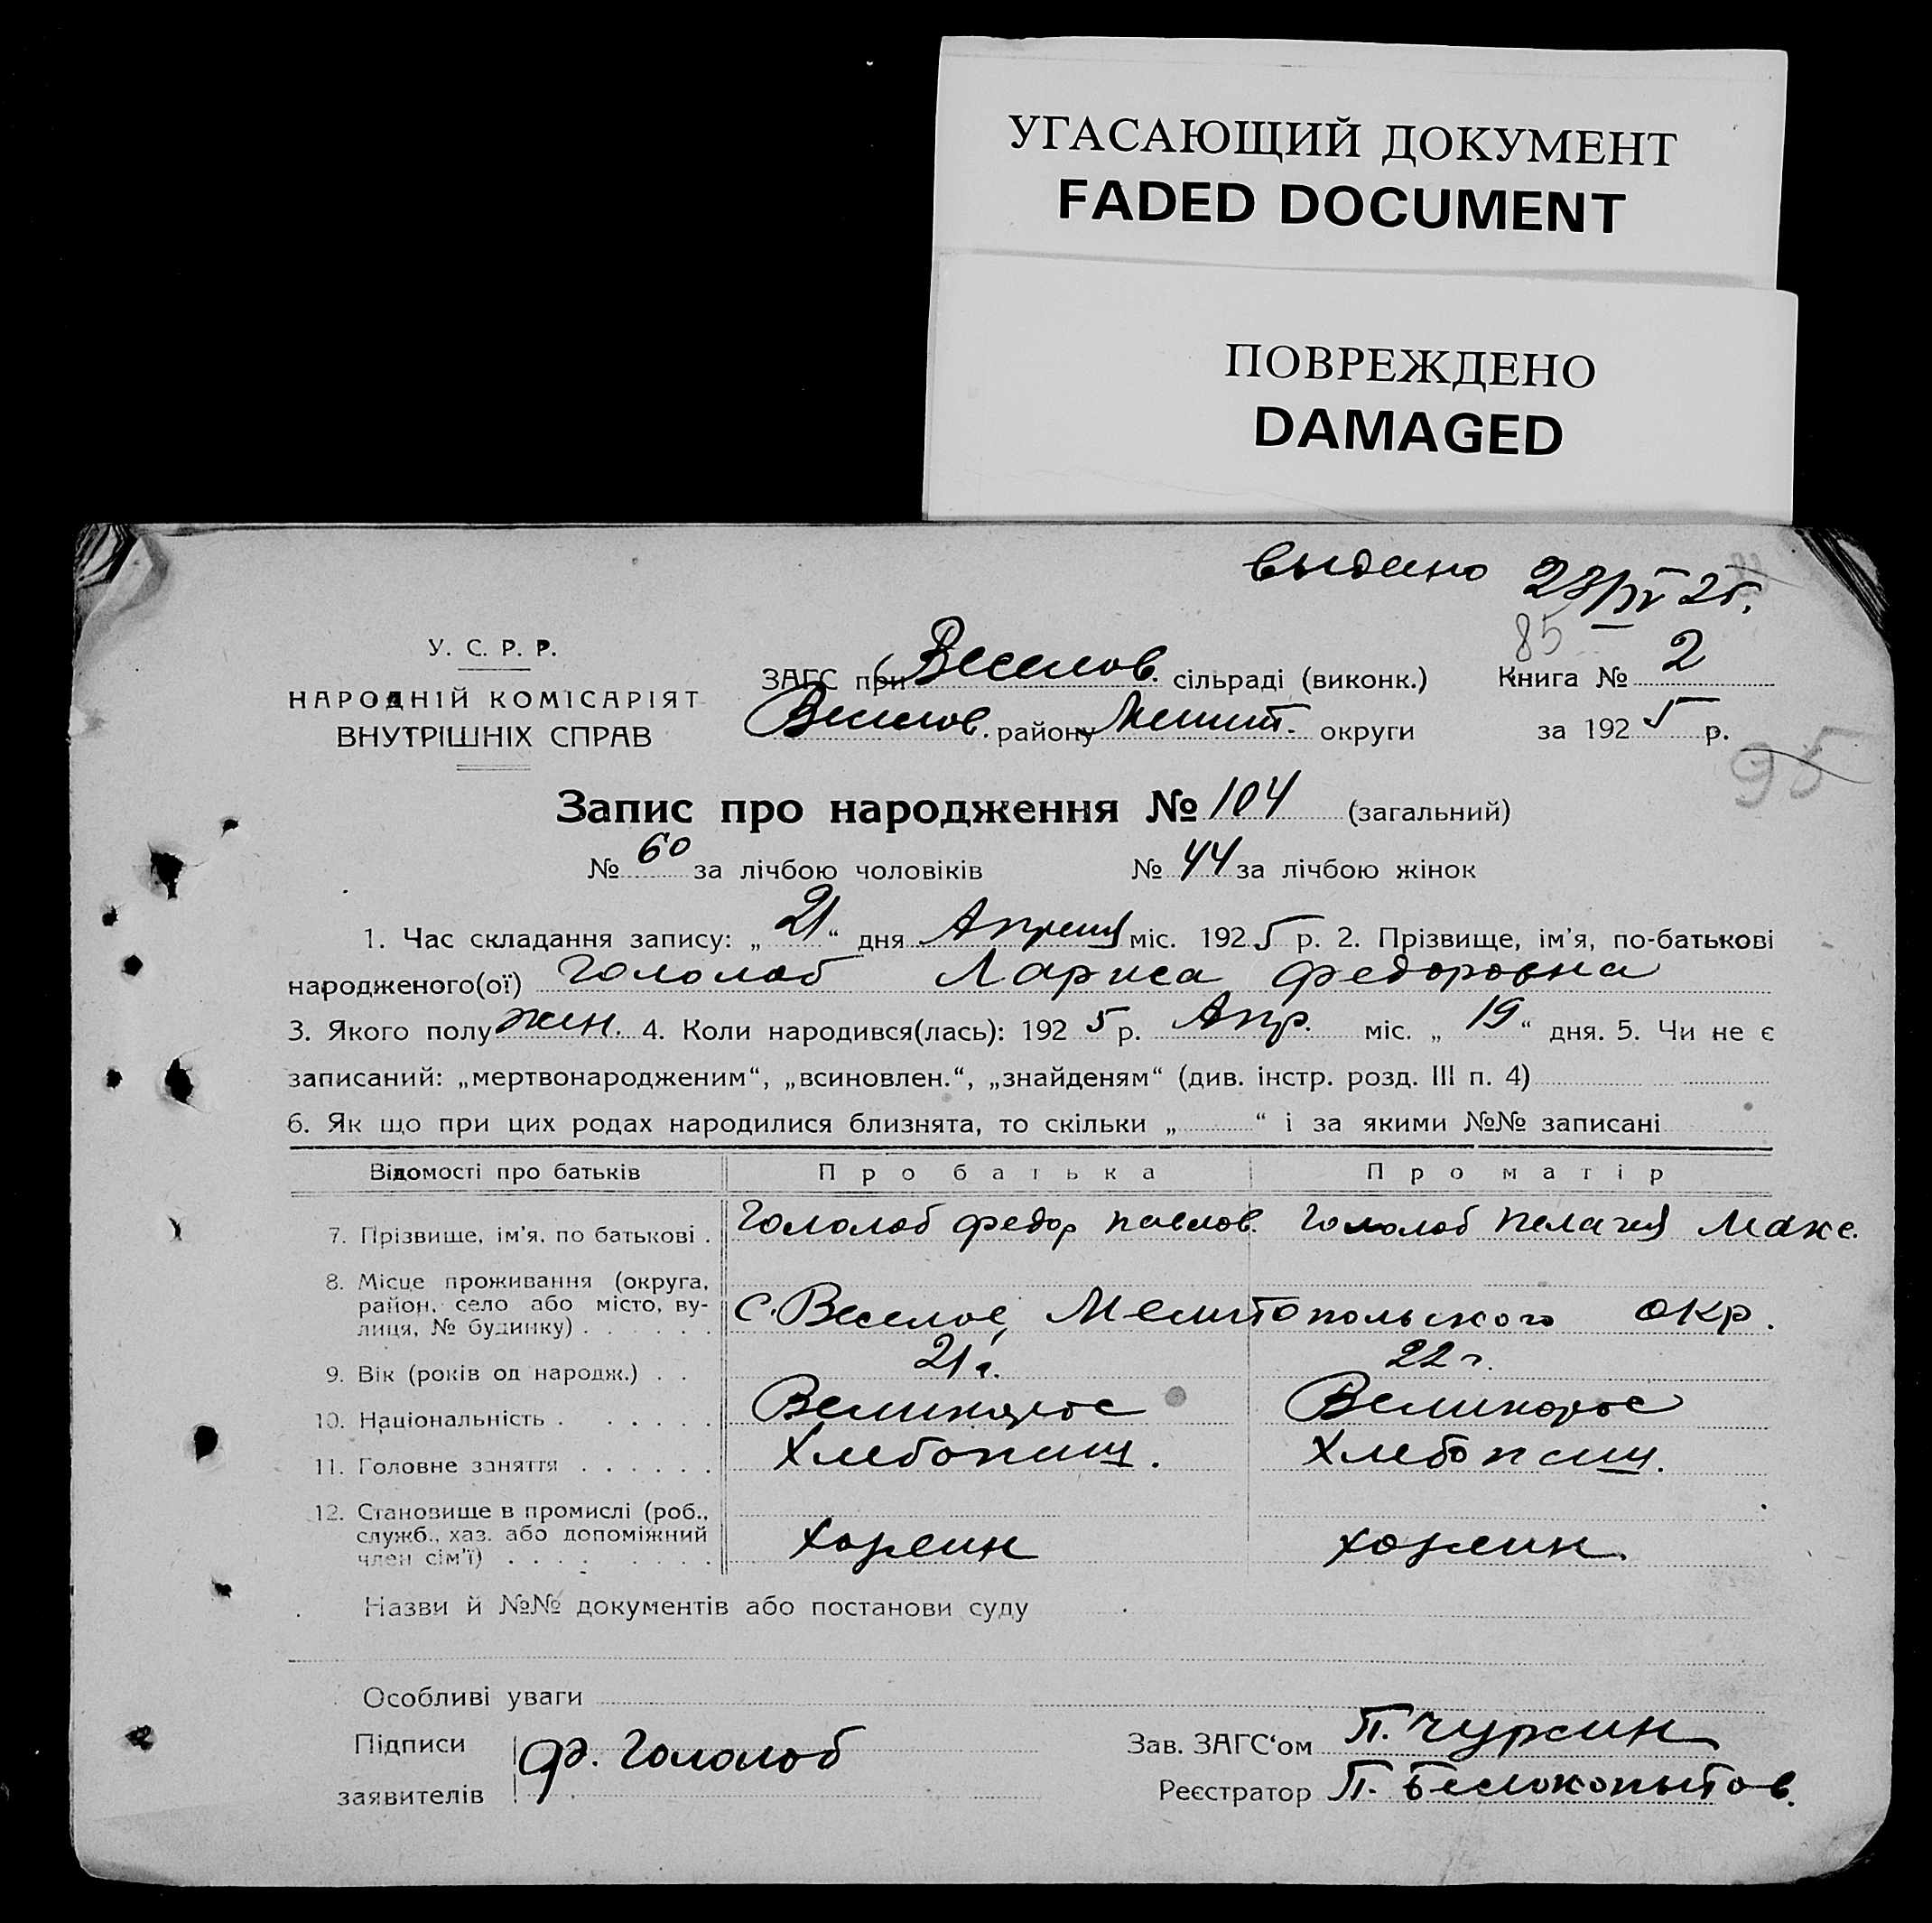 УГАСАЮЩИЙ ДОКУМЕНТ
FADED DOCUMENT
ПОВРЕЖДЕНО
DAMAGED
выдано 23/IV 25.
85
У. С. Р. Р.
НАРОДНІЙ КОМІСАРІЯТ
ВНУТРІШНІХ СПРАВ
ЗАГС при Веселов. сільраді (виконк.) Книга № 2
Веселов. району Мелит. округи за 1925 р.
95
Запис про народження № 104 (загальний)
№ 60 за лічбою чоловіків № 44 за лічбою жінок
1. Час складання запису: „21“ дня Апреля міс. 1925 р. 2. Прізвище, ім'я, по-батькові
народженого(ої) Гололоб Лариса Федоровна
3. Якого полу жен. 4. Коли народився(лась): 1925 р. Апр. міс. „19“ дня. 5. Чи не є
записаний: „мертвонародженим“, „всиновлен.“, „знайденям“ (див. інстр. розд. III п. 4)
6. Як що при цих родах народилися близнята, то скільки „ “ і за якими №№ записані
Відомості про батьків Про батька Про матір
7. Прізвище, ім'я, по батькові . Гололоб Федор Павлов. Гололоб Пелагея Макс.
8. Місце проживання (округа,
район, село або місто, ву-
лиця, № будинку) . . . . . . с. Веселое, Мелитопольского окр.
9. Вік (років од народж.) . . 21 г. 22 г.
10. Національність . . . . . . Великорос Великорос
11. Головне заняття . . . . . . Хлебопаш. Хлебопаш.
12. Становище в промислі (роб.,
служб., хаз. або допоміжний
член сім'ї) . . . . . . . . .
Назви й №№ документів або постанови суду
Особливі уваги
Підписи
заявителів Ф. Гололоб
Зав. ЗАГС‘ом П. Чурсин
Реєстратор П. Белокопытов.